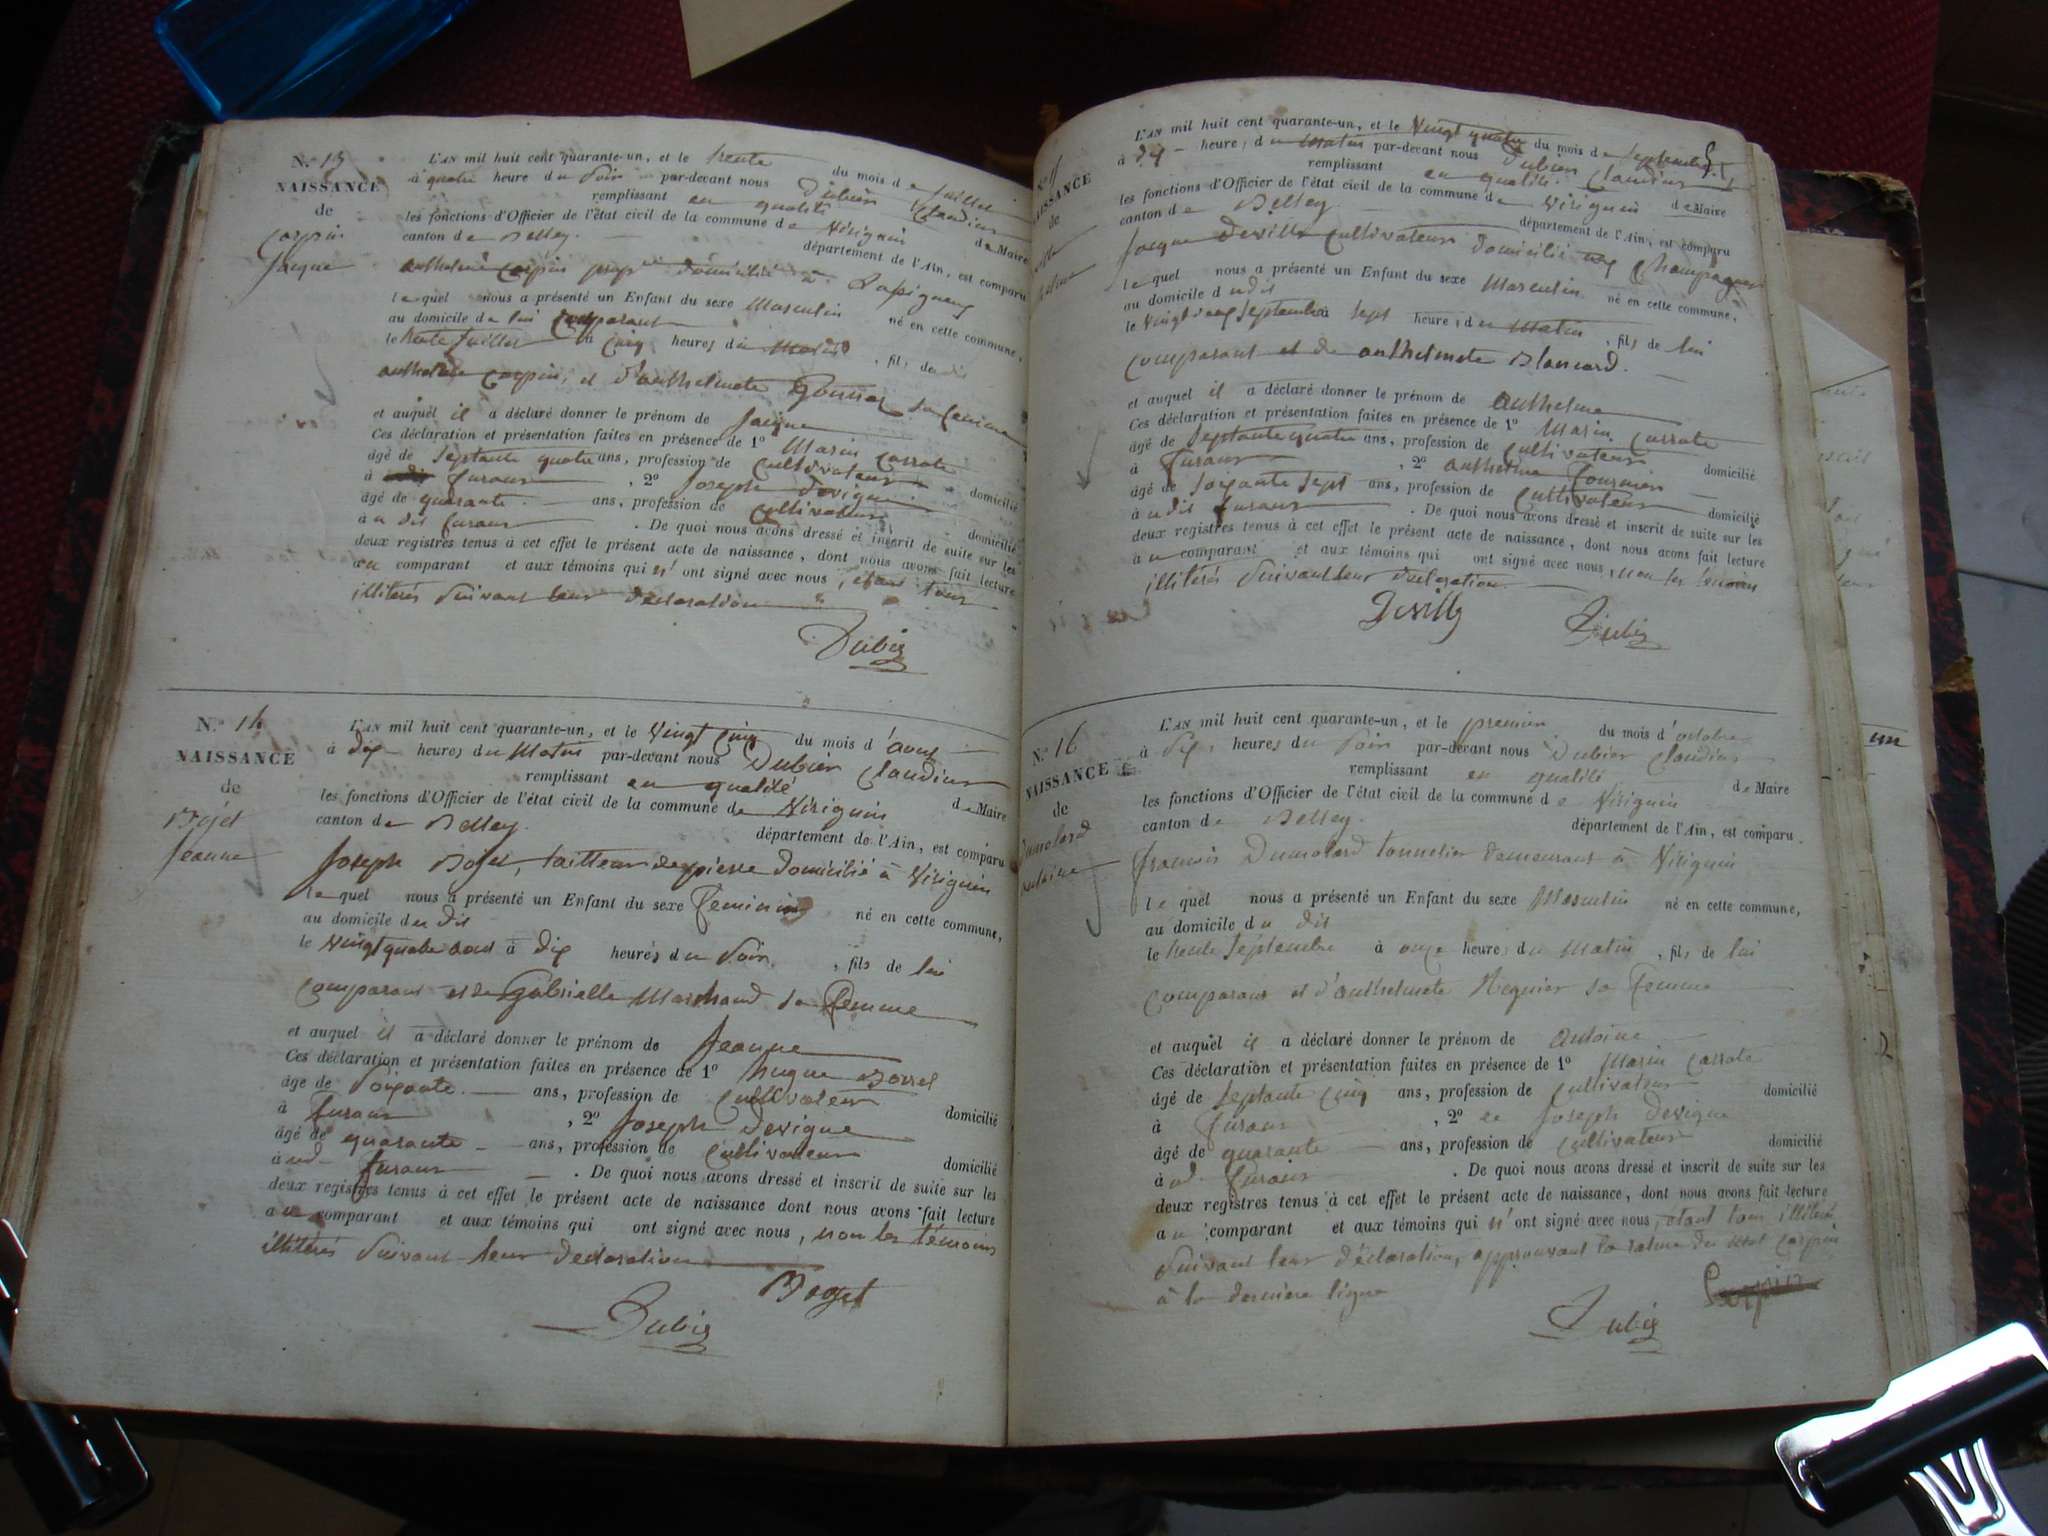 N.° 13
NAISSANCE
de
Corpin
Jacque
L'AN mil huit cent quarante-un, et le trente du mois de juillet
à quatre heure du soir par-devant nous Dubier Claudius
remplissant en qualité de Maire
les fonctions d'Officier de l'état civil de la commune de Virignin
canton de Belley. département de l'Ain, est comparu
anthelme Corpin domicilié à
lequel nous a présenté un Enfant du sexe Masculin né en cette commune,
au domicile de lui comparant
le trente juillet à cinq heures du matin, fils de
anthelme Corpin, et d'anthelmete sa femme
et auquel il a déclaré donner le prénom de Jacque
Ces déclaration et présentation faites en présence de 1° Marin Carrote
âgé de septante quatre ans, profession de Cultivateur domicilié
à furans, 2° Joseph Devigne
âgé de quarante ans, profession de Cultivateur domicilié
à u dit furans. De quoi nous avons dressé et inscrit de suite sur les
deux registres tenus à cet effet le présent acte de naissance, dont nous avons fait lecture
au comparant et aux témoins qui n'ont signé avec nous, étant tous
illitérés suivant leur déclaration
Dubier
N.° 14
NAISSANCE
de
Bojet
Jeanne
L'AN mil huit cent quarante-un, et le vingt cinq du mois d'aout
à dix heures du Matin par-devant nous Dubier Claudius
remplissant en qualité de Maire
les fonctions d'Officier de l'état civil de la commune de Virignin
canton de Belley. département de l'Ain, est comparu
Joseph Bojet, tailleur de pierre domicilié à Virignin
lequel nous a présenté un Enfant du sexe feminin né en cette commune,
au domicile du dit
le vingt quatre aout à dix heures du soir, fils de lui
comparant et de Gabrielle Marchand sa femme
et auquel il a déclaré donner le prénom de Jeanne
Ces déclaration et présentation faites en présence de 1° hugue Borrel
âgé de soixante ans, profession de Cultivateur domicilié
à furans, 2° Joseph Devigne
âgé de quarante ans, profession de Cultivateur domicilié
à ud furans. De quoi nous avons dressé et inscrit de suite sur les
deux registres tenus à cet effet le présent acte de naissance dont nous avons fait lecture
au comparant et aux témoins qui ont signé avec nous, non les témoins
illitérés suivant leur declaration
Boget
Dubier
NAISSANCE
de
L'AN mil huit cent quarante-un, et le vingt quatre du mois de septembre
à dix heure, du matin par-devant nous Dubier Claudius
remplissant en qualité de Maire
les fonctions d'Officier de l'état civil de la commune de Virignin
canton de Belley. département de l'Ain, est comparu
Jacque Deville Cultivateur domicilié
lequel nous a présenté un Enfant du sexe Masculin né en cette commune,
au domicile du dit
le septembre à sept heure, du Matin, fils de lui
comparant et de anthelmete Blancard.
et auquel il a déclaré donner le prénom de anthelme
Ces déclaration et présentation faites en présence de 1° Marin Carrote
âgé de septante quatre ans, profession de Cultivateur domicilié
à furans, 2° anthelme Fournier
âgé de soixante sept ans, profession de Cultivateur domicilié
à u dit furans. De quoi nous avons dressé et inscrit de suite sur les
deux registres tenus à cet effet le présent acte de naissance, dont nous avons fait lecture
au comparant et aux témoins qui ont signé avec nous, non les témoins
illitérés suivant leur declaration
Deville
Dubier
N.° 16
NAISSANCE
de
Dumolard
antoine
L'AN mil huit cent quarante-un, et le premier du mois d'octobre
à six heures du soir par-devant nous Dubier Claudius
remplissant en qualité de Maire
les fonctions d'Officier de l'état civil de la commune de Virignin
canton de Belley. département de l'Ain, est comparu
francois Dumolard tonnelier demeurant à Virignin
lequel nous a présenté un Enfant du sexe Masculin né en cette commune,
au domicile du dit
le trente septembre à onze heure, du Matin, fils de lui
comparant et d'anthelmete Reynier sa femme
et auquel il a déclaré donner le prénom de antoine
Ces déclaration et présentation faites en présence de 1° Marin Carrote
âgé de septante cinq ans, profession de Cultivateur domicilié
à furans, 2° Joseph Devigne
âgé de quarante ans, profession de Cultivateur domicilié
à ud furans. De quoi nous avons dressé et inscrit de suite sur les
deux registres tenus à cet effet le présent acte de naissance, dont nous avons fait lecture
au comparant et aux témoins qui n'ont signé avec nous, étant tous illitérés
suivant leur déclaration, approuvant la rature du mot Corpin
à la derniere ligne
Corpin
Dubier
un